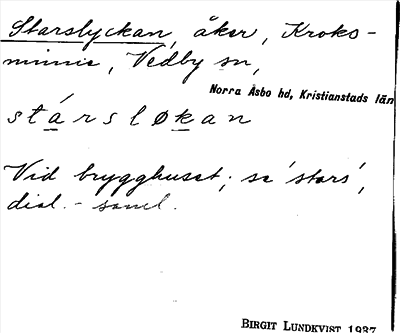 Starslyckan, åker, Kroks-
minne, Vedby sn,
Norra Åsbo hd, Kristianstads län
stársløkan
Vid brygghuset; se 'stars',
dial. - saml.
BIRGIT LUNDKVIST 1937